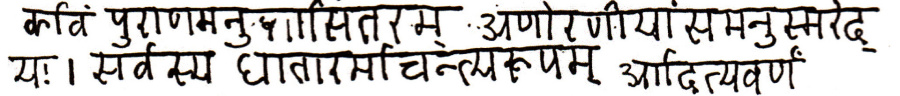 कविं पुराणमनुशासितारम् अणोरणीयांसमनुस्मरेद्
यः। सर्वस्य धातारमचिन्त्यरूपम् आदित्यवर्णं